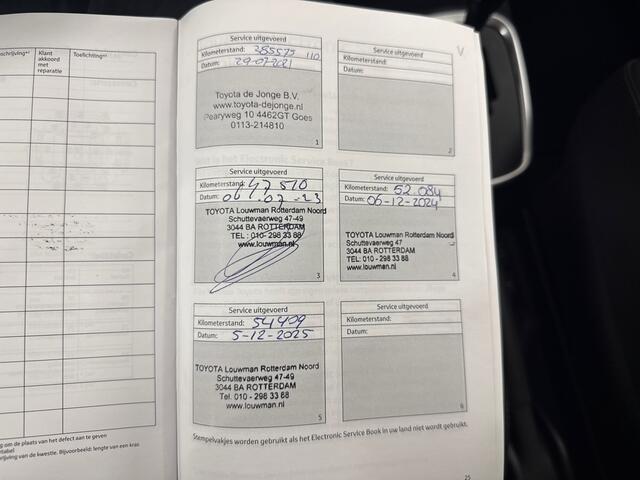 Klant
akkoord
met
reparatie
Service uitgevoerd
Kilometerstand:
Datum: 29-07-2021
Toyota de Jonge B.V.
www.toyota-dejonge.nl
Pearyweg 10 4462GT Goes
0113-214810
1
Service uitgevoerd
Kilometerstand:
Datum:
2
V
Service uitgevoerd
Kilometerstand: 47510
Datum: 06.07-23
TOYOTA Louwman Rotterdam Noord
Schuttevaerweg 47-49
3044 BA ROTTERDAM
TEL: 010- 298 33 88
www.louwman.nl
3
Service uitgevoerd
Kilometerstand: 52.084
Datum: 06-12-2024
TOYOTA Louwman Rotterdam Noord
Schuttevaerweg 47
3044 BA ROTTERDAM
TEL: 010 - 298 33 88
www.louwman.nl
4
Service uitgevoerd
Kilometerstand: 54409
Datum: 5-12-2025
TOYOTA Louwman Rotterdam Noord
Schuttevaerweg 47-49
3044 BA ROTTERDAM
Tel. 010 - 298 33 88
www.louwman.nl
5
Service uitgevoerd
Kilometerstand:
Datum:
6
Stempelvakjes worden gebruikt als het Electronic Service Book in uw land niet wordt gebruikt.
25
om de plaats van het defect aan te geven
van de kwestie. Bijvoorbeeld: lengte van een kras